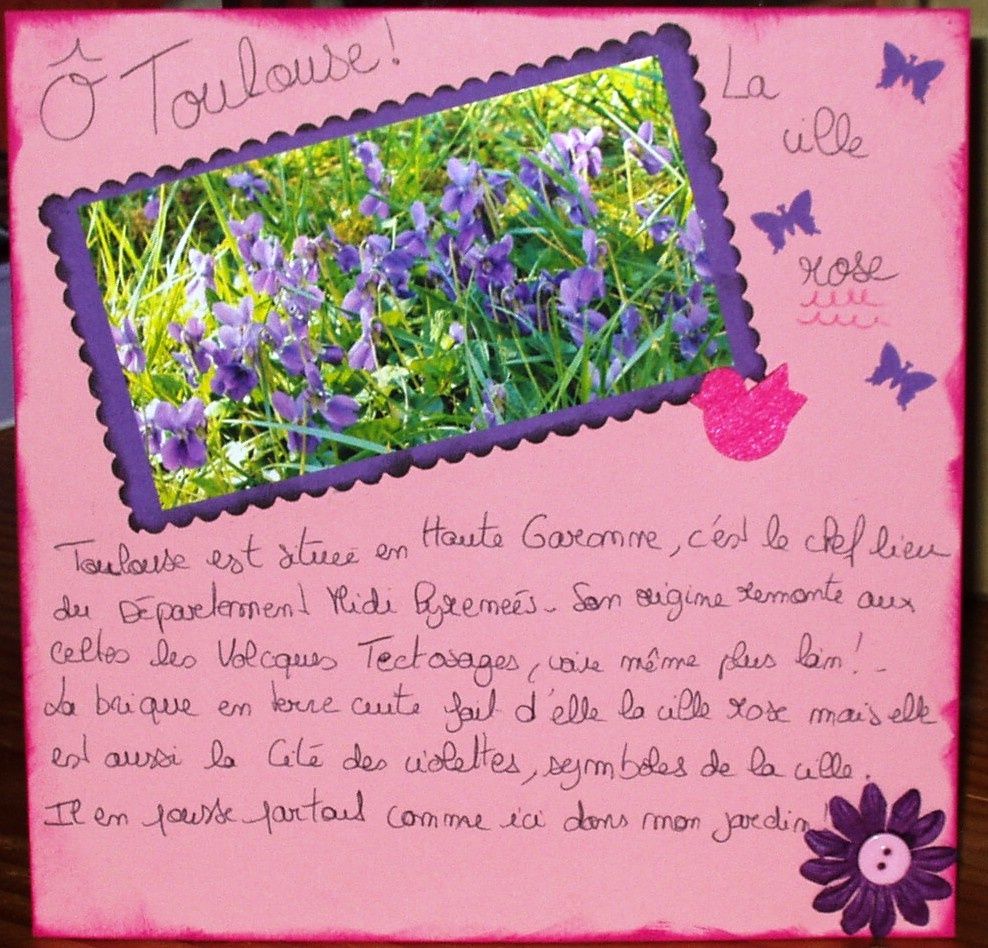 Ô Toulouse!
La
ville
rose
Toulouse est située en Haute Garonne, c'est le chef lieu
du Département Midi Pyrénéés. Son origine remonte aux
celtes les Volcques Tectosages, voire même plus loin!
La brique en terre cuite fait d'elle la ville rose mais elle
est aussi la Cité des violettes, symboles de la ville.
Il en pousse partout comme ici dans mon jardin!